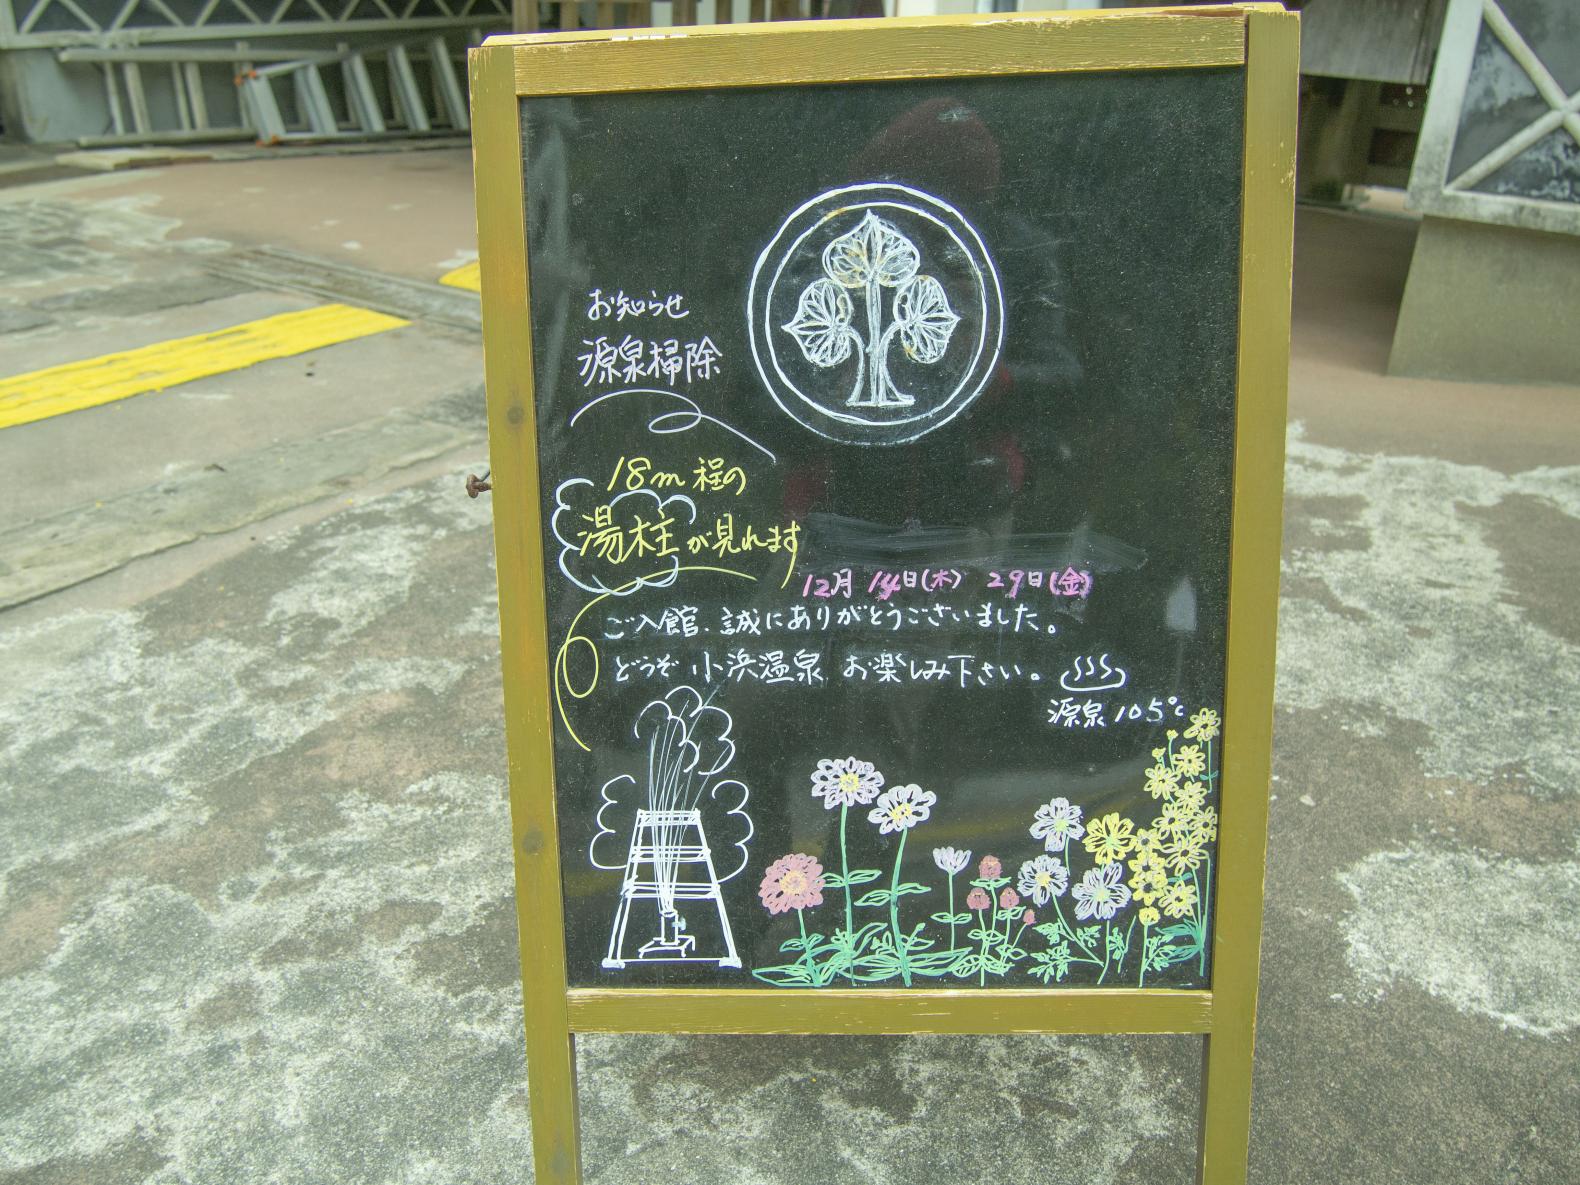 お知らせ
源泉掃除
18m程の
湯柱が見れます
12月 14日(木) 29日(金)
ご入館、誠にありがとうございました。
どうぞ 小浜温泉 お楽しみ下さい。
源泉105℃